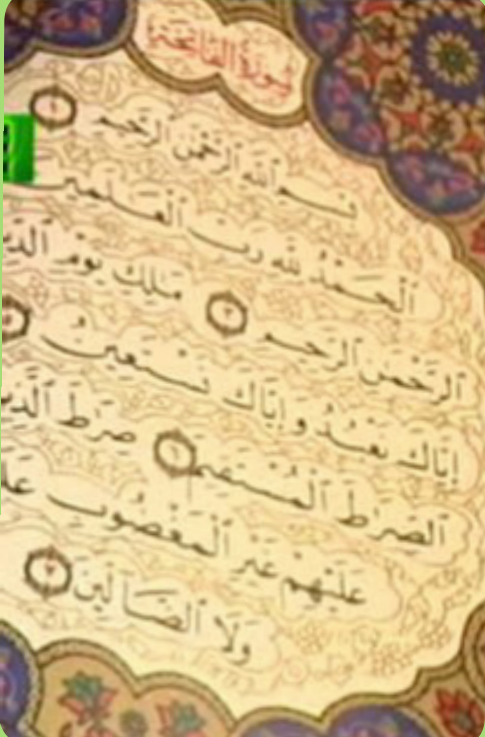 سُورَةُ الفَاتِحَةِ
بِسْمِ ٱللَّهِ ٱلرَّحْمَٰنِ ٱلرَّحِيمِ ١
ٱلْحَمْدُ لِلَّهِ رَبِّ ٱلْعَٰلَمِينَ
ٱلرَّحْمَٰنِ ٱلرَّحِيمِ ٣ مَٰلِكِ يَوْمِ
إِيَّاكَ نَعْبُدُ وَإِيَّاكَ نَسْتَعِينُ
ٱلصِّرَٰطَ ٱلْمُسْتَقِيمَ ٦ صِرَٰطَ
عَلَيْهِمْ غَيْرِ ٱلْمَغْضُوبِ
وَلَا ٱلضَّآلِّينَ ٧